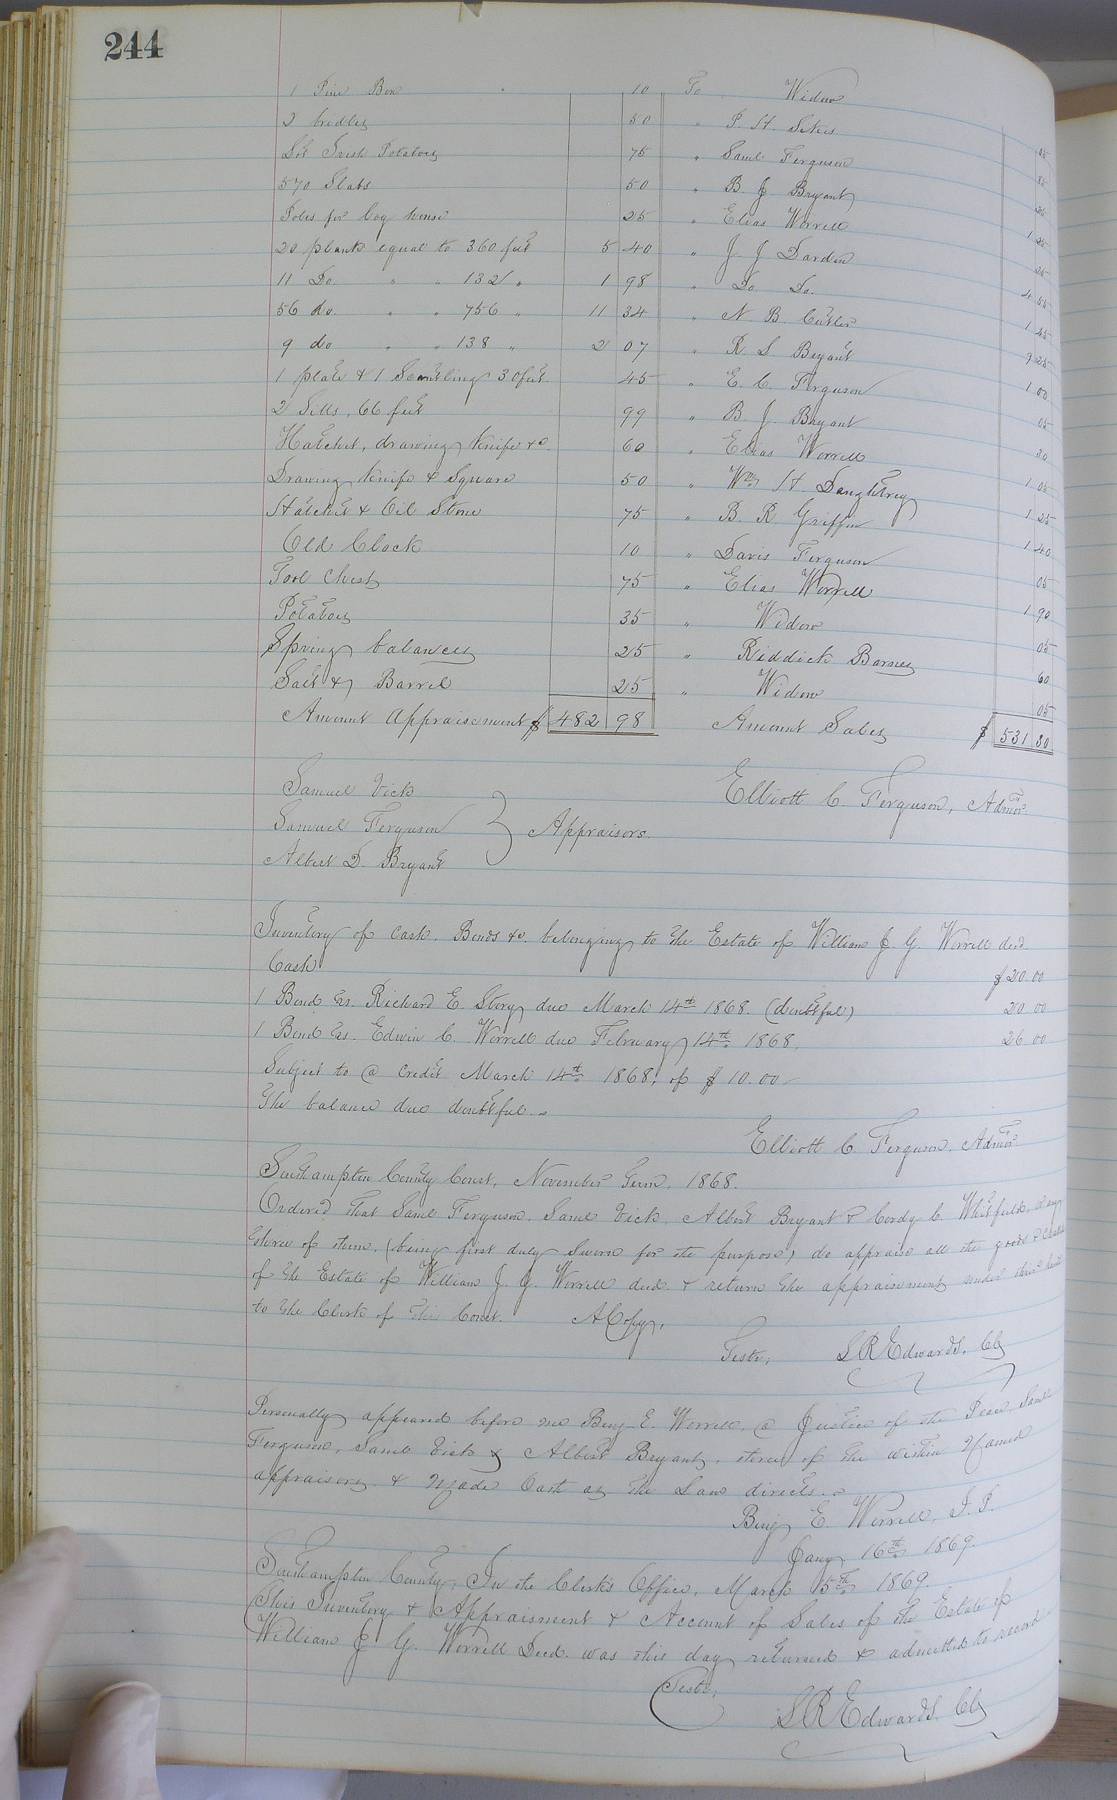 244
1 Pine Box 10 To Widow 05
2 bridles 50 " P. H. Sikes
Lot Irish Potatoes 75 " Saml Ferguson
570 Slabs 50 " B. J Bryant 1 25
Poles for log house 25 " Elias Worrell 25
20 planks equal to 360 feet 5 40 " J J Darden 4 55
11 Do " " 132 " 1 98 " Do Do. 1 45
56 do. " " 756 " 11 34 " N. B. Cutler 9 25
9 do " " 138 " 2 07 " R. S Bryant 1 00
1 plate & 1 Scantling 30 feet 45 " E. C. Ferguson 05
2 Sills, 66 feet 99 " B J. Bryant 30
Hatchet, drawing Knife &c 60 " Elias Worrell 1 05
Drawing Knife & Square 50 " Wm H. Daughtrey 1 25
Hatchet & Oil Stone 75 " B. R Griffin 1 40
Old Clock 10 " Davis Ferguson 05
Tool Chest 75 " Elias Worrell 1 90
Potatoes 35 " Widow 05
Spring balances 25 " Riddick Barnes 60
Salt & Barrel 25 " Widow 05
Amount appraisement $ 482 98 Amount Sales $ 531 30
Samuel Vick
Elliott C. Ferguson, Admor.
Samuel Ferguson } Appraisors.
Albert D. Bryant
Inventory of Cash, Bonds &c. belonging to the Estate of William J. G. Worrell decd
Cash $20.00
1 Bond vs. Richard E. Story due March 14th 1868. (doubtful) 20.00
1 Bond vs. Edwin C. Worrell due February 14th 1868. 26.00
Subject to a Credit March 14th 1868, of $10.00
The balance due doubtful.
Elliott C. Ferguson, Admor
Southampton County Court, November Term, 1868.
Ordered that Saml Ferguson, Saml Vick, Albert Bryant & Cordy C. Whitfield, or any
three of them, (being first duly Sworn for the purpose) do appraise all the goods & Chattels
of the Estate of William J. G. Worrell decd & return the appraisement under their hands
to the Clerk of this Court. A Copy,
Teste, L R Edwards, Clk
Personally appeared before me Benj E. Worrell, a Justice of the Peace, Saml
Ferguson, Saml Vick & Albert Bryant, three of the within Named
appraisors & made Oath as the Law directs.
Benj E. Worrell, J. P.
Jany 16th 1869.
Southampton County, In the Clerk's Office, March 15th 1869.
This Inventory & Appraisment & Account of Sales of the Estate of
William J G. Worrell Decd. was this day returned & admitted to record
Teste,
L R Edwards. Clk